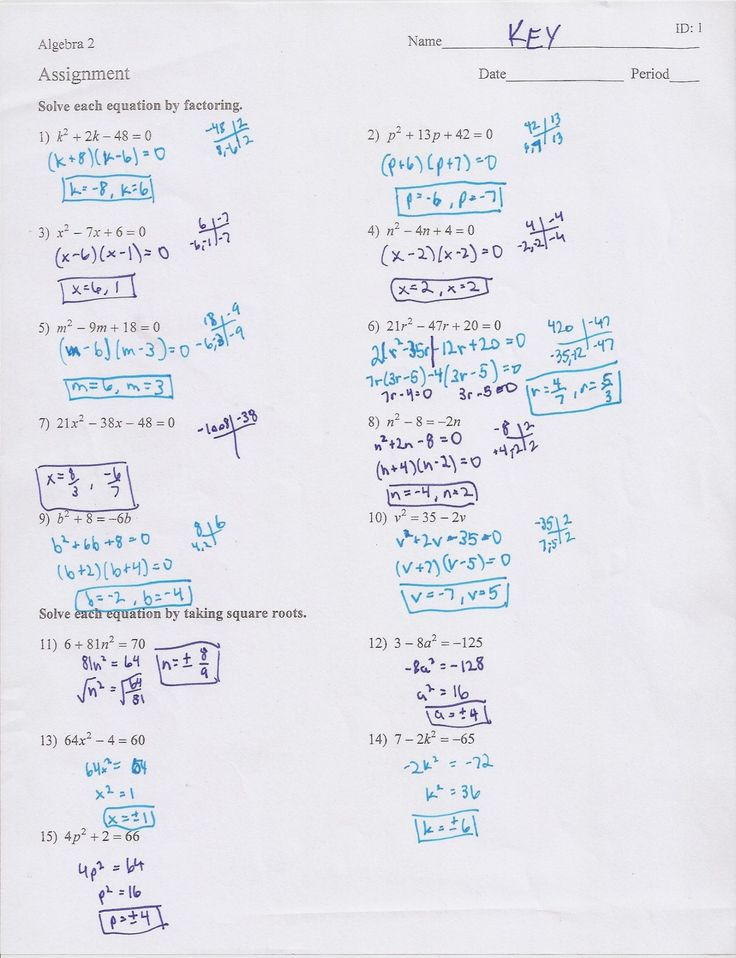 ID: 1
Algebra 2
Name KEY
Assignment
Date Period
Solve each equation by factoring.
1) k² + 2k − 48 = 0
-48 | 2
8,-6 | 2
(k+8)(k-6)=0
k=-8, k=6
2) p² + 13p + 42 = 0
42 | 13
6,7 | 13
(p+6)(p+7)=0
p=-6, p=-7
3) x² − 7x + 6 = 0
6 | -7
-6,-1 | -7
(x-6)(x-1)=0
x=6, 1
4) n² − 4n + 4 = 0
4 | -4
-2,-2 | -4
(x-2)(x-2)=0
x=2, x=2
5) m² − 9m + 18 = 0
18 | -9
-6,3 | -9
(m-6)(m-3)=0
m=6, m=3
6) 21r² − 47r + 20 = 0
420 | -47
-35,-12 | -47
21r²-35r-12r+20=0
7r(3r-5)-4(3r-5)=0
7r-4=0 3r-5=0
r=4/7, r=5/3
7) 21x² − 38x − 48 = 0
-1008 | -38
x=8/3, -6/7
8) n² − 8 = −2n
-8 | 2
+4,-2 | 2
n²+2n-8=0
(n+4)(n-2)=0
n=-4, n=2
9) b² + 8 = −6b
8 | 6
4,2
b²+6b+8=0
(b+2)(b+4)=0
b=-2, b=-4
10) v² = 35 − 2v
-35 | 2
7,-5 | 2
v²+2v-35=0
(v+7)(v-5)=0
v=-7, v=5
Solve each equation by taking square roots.
11) 6 + 81n² = 70
81n²=64
√n²=√64/81
n=± 8/9
12) 3 − 8a² = −125
-8a²=-128
a²=16
a=±4
13) 64x² − 4 = 60
64x²=64
x²=1
x=±1
14) 7 − 2k² = −65
-2k²=-72
k²=36
k=±6
15) 4p² + 2 = 66
4p²=64
p²=16
p=±4